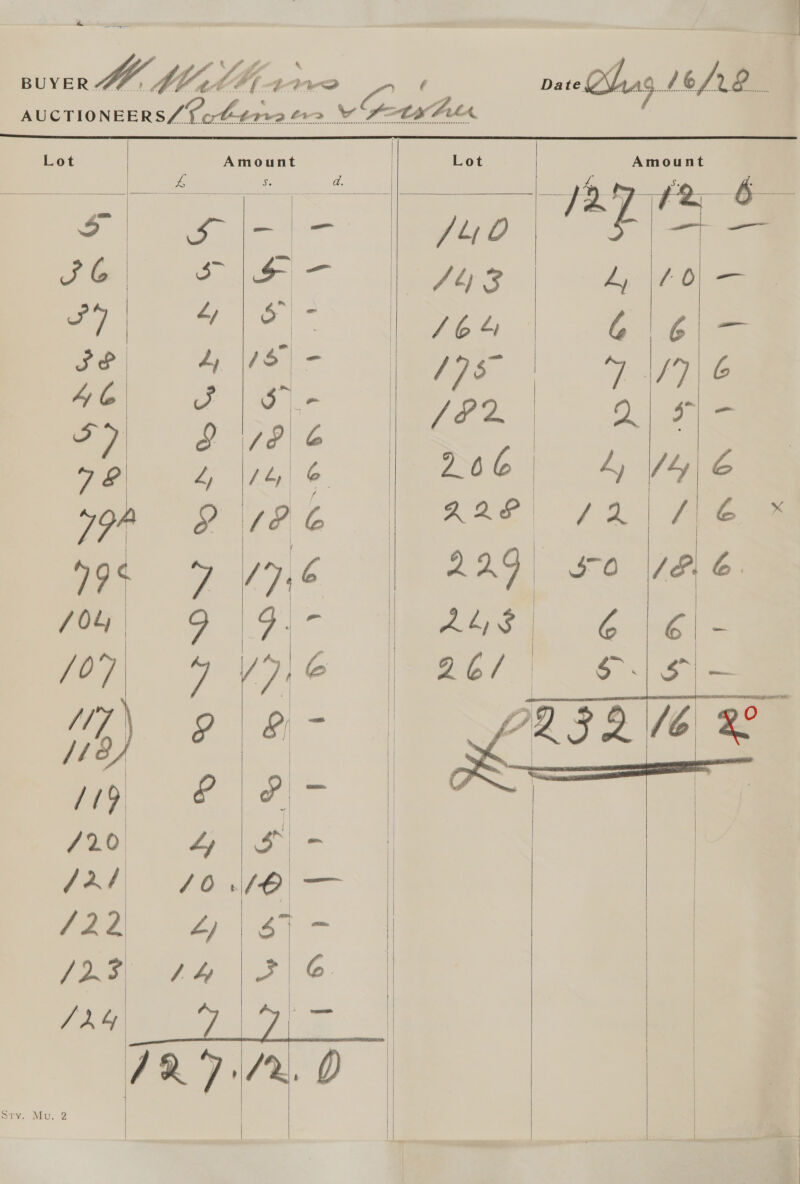 BUYER W. Williams
Date Aug 16/28
AUCTIONEERS/Robinson & Fisher
Lot Amount Lot Amount
£ s. d.
127 12 6
5 5 - -
140 5 — —
36 5 5 -
143 4 10 —
37 4 5 -
164 6 6 —
38 4 15 -
175 7 17 6
46 3 5 -
182 2 5 -
57 2 12 6
206 4 14 6
78 4 14 6
228 12 1 6 x
79A 2 12 6
229 50 18 6
79c 7 17.6
243 6 6 -
104 9 9. -
261 5 5 —
107 7 17, 6
£232 16 20
117) 8 8 -
118)
119 8 8 -
120 4 5 -
121 10 10 —
122 4 5 -
123 14 3 6
124 7 7 —
127.12.0
Sry. Mu. 2